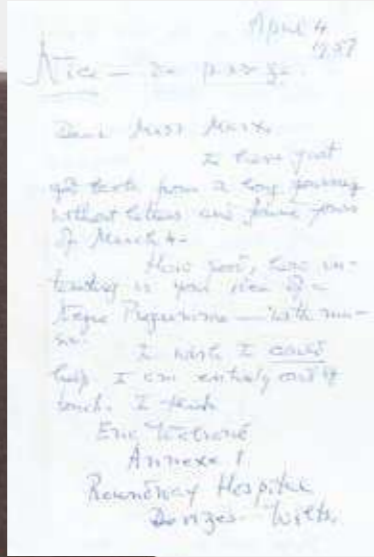 April 4
1957
Nice — de passage.
Dear Miss Marx,
I have just
got back from a long journey
without letters and found yours
of March 4.
How good, how in-
teresting is your idea of a
Programme — with mu-
sic!
I wish I could
help. I am entirely out of
touch. I think
Eric
Annexe 1
Roundway Hospital
Devizes. Wilts.